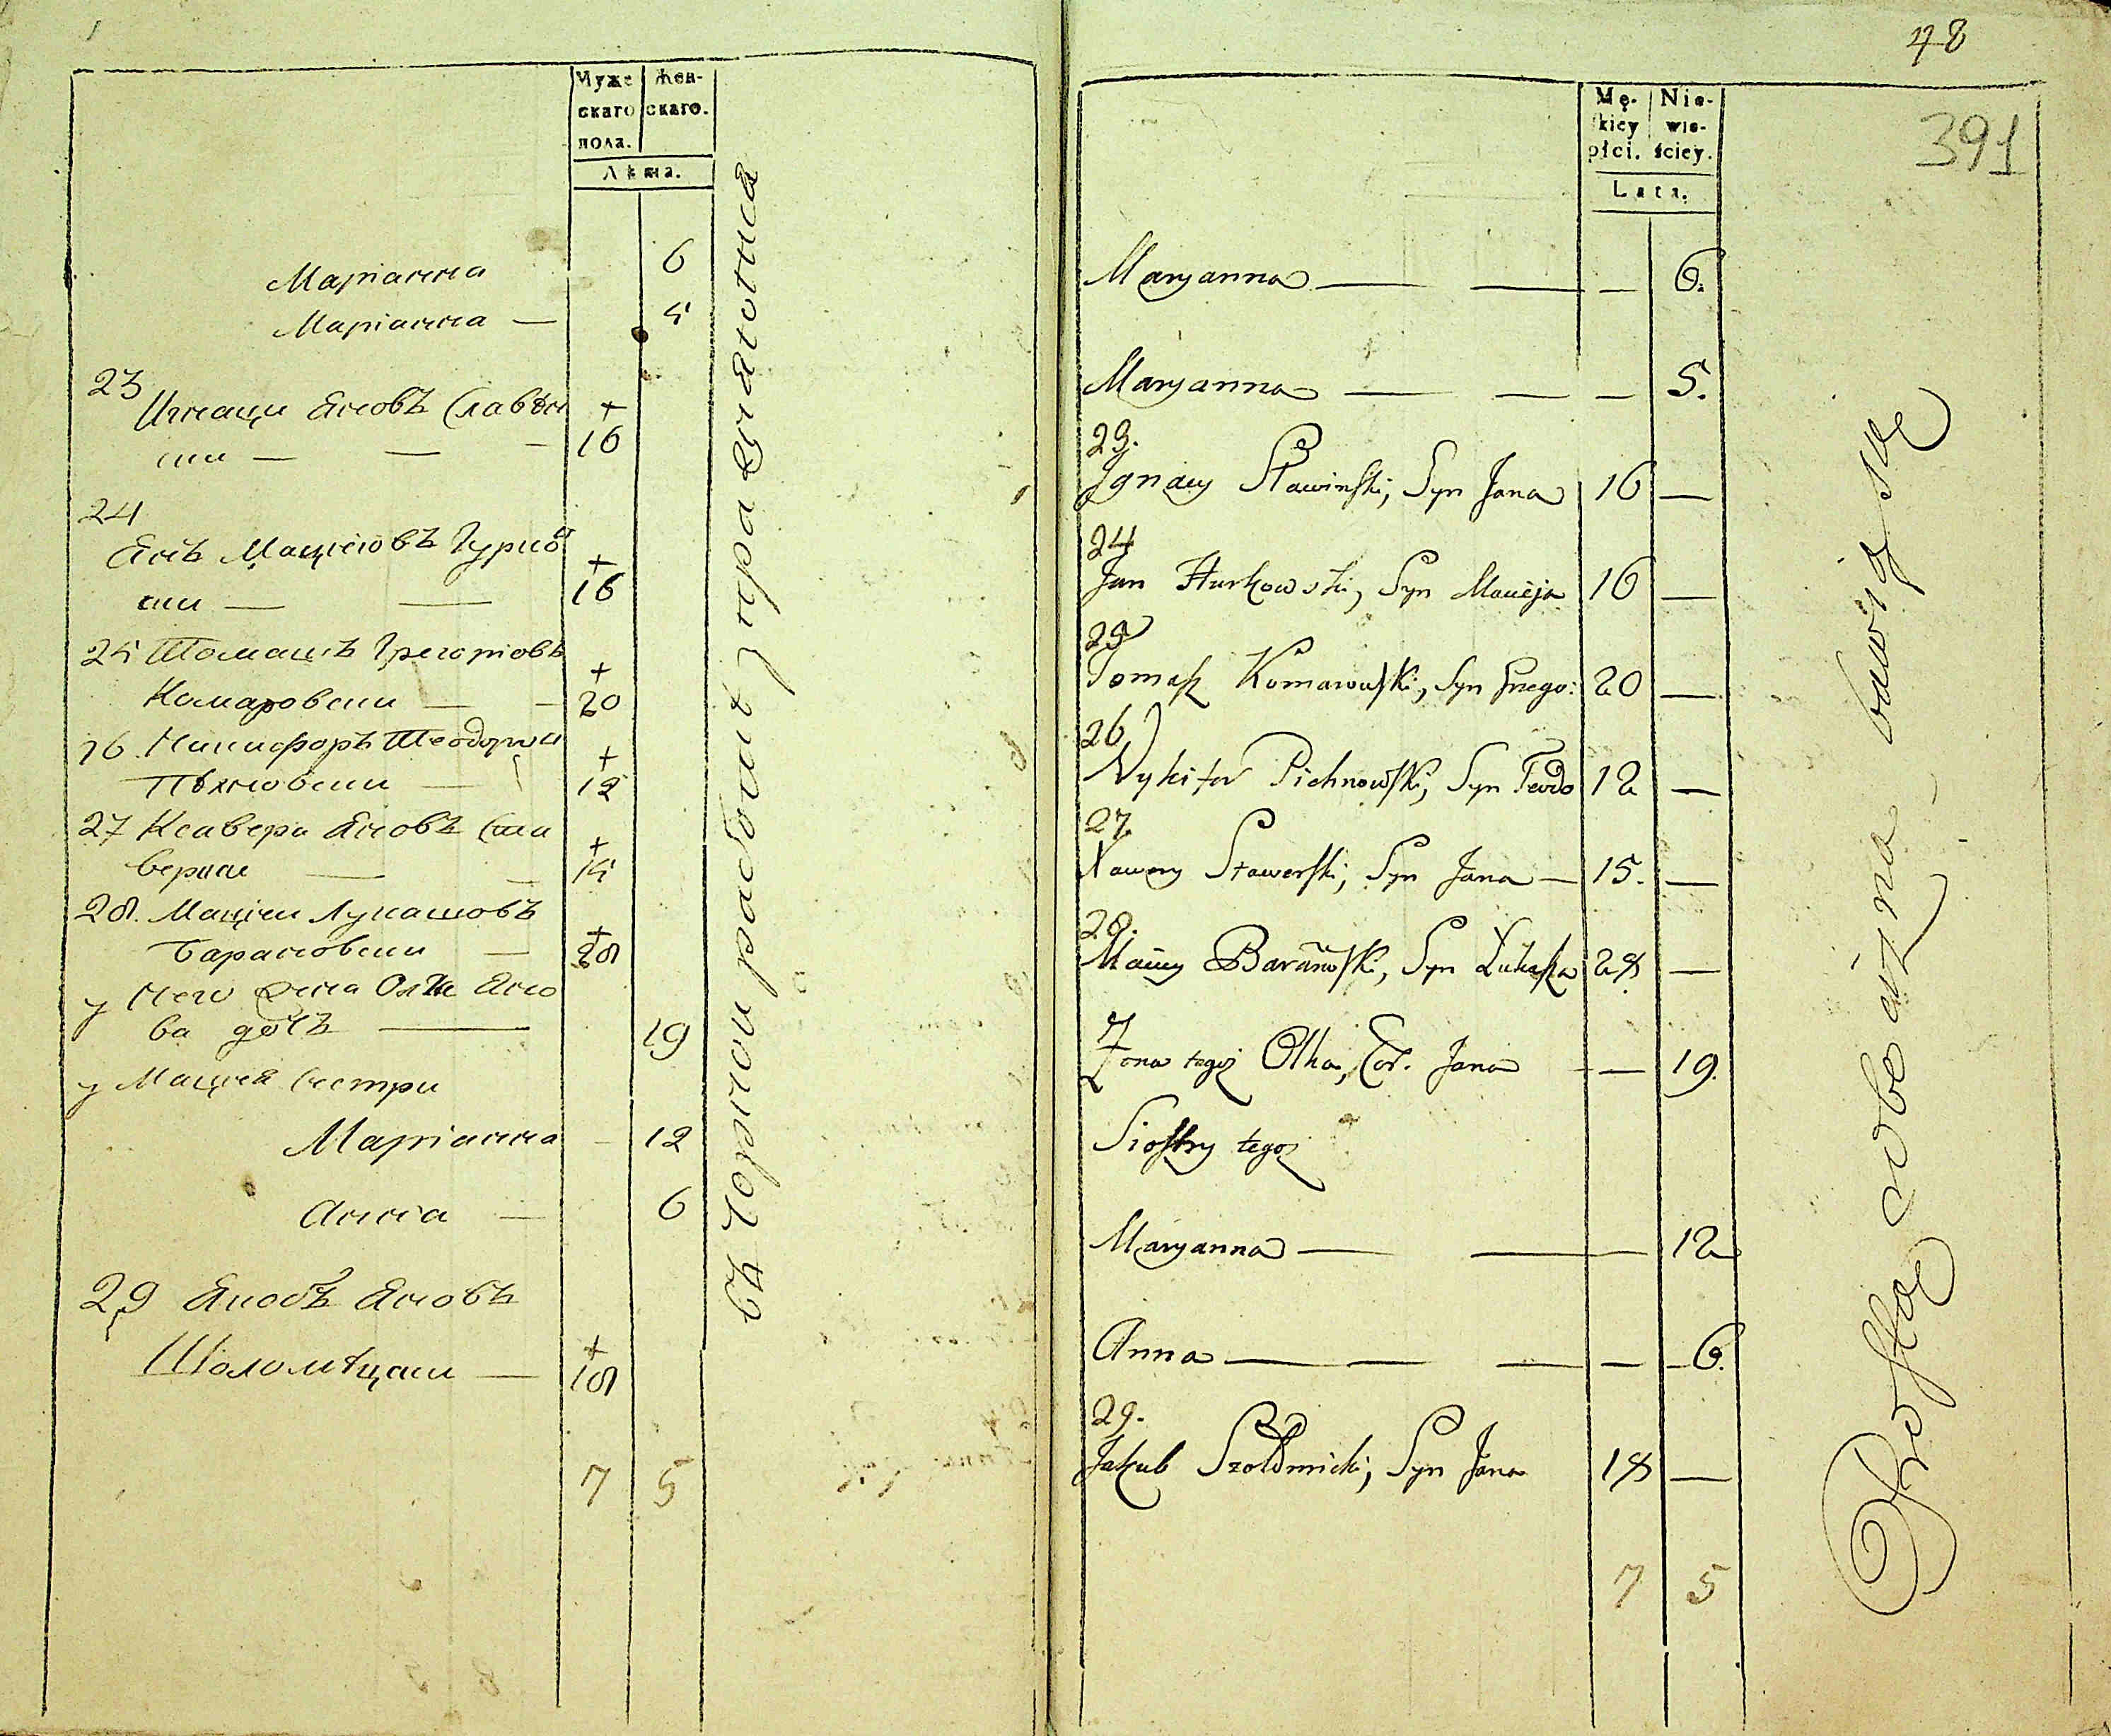 Муже
скаго
пола.
Жен-
скаго.
Лѣта.
Маріанна 6
Маріанна — 5
23
Игнаци Яновъ Славѣн
ски — — — +
16
24
Янъ Маціеовъ Гурков
ски — — +
16
25 Томашъ Грегоріовъ
Комаровски — — +
20
26. Никифоръ Теодоров
Пѣхновски — +
12
27 Ксавери Яновъ Ста
верски — — +
15
28. Маціи Лукашовъ
Барановски — +
28
у него жена Олка Яно
ва дочь — 19
у Мацея сестри
Маріанна — 12
Анна — 6
29 Якобъ Яновъ
Шоломѣцки — +
18
7 5
въ чорной работѣ упра
48
391
Mę-
skiey
płci.
Nie-
wie-
ściey.
Lata.
Maryanna — — — 6.
Maryanna — — — 5.
23.
Ignacy Sławinski, Syn Jana 16 —
24
Jan Hurkowski, Syn Macieja 16 —
25
Tomasz Komarowski, Syn Grzego: 20 —
26
Nykifor Pichnowski, Syn Teodo 12 —
27.
Xawery Stawerski, Syn Jana — 15. —
28.
Maciey Baranowski, Syn Łukasza 28. —
Żona tegoż Olka, Cor. Jana — 19.
Siostry tegoż
Maryanna — — — 12
Anna — — — — 6.
29.
Jakub Szołomicki, Syn Jana 18 —
7 5
bawią się